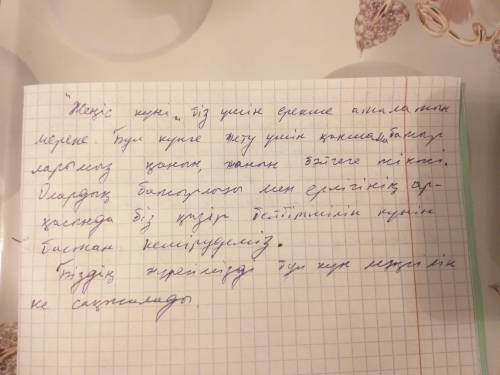 "Жеңіс күні" біз үшін ерекше аталатын
мереке. Бұл күнге жету үшін қанша батыр
ларымыз қанын, жанын бәйгеге тікті.
Олардың батырлығы мен ерлігінің ар-
қасында біз қазір бейбітшілік күнін
бастан кешірудеміз.
Біздің жүрегімізде бұл күн мәңгілік
ке сақталады.